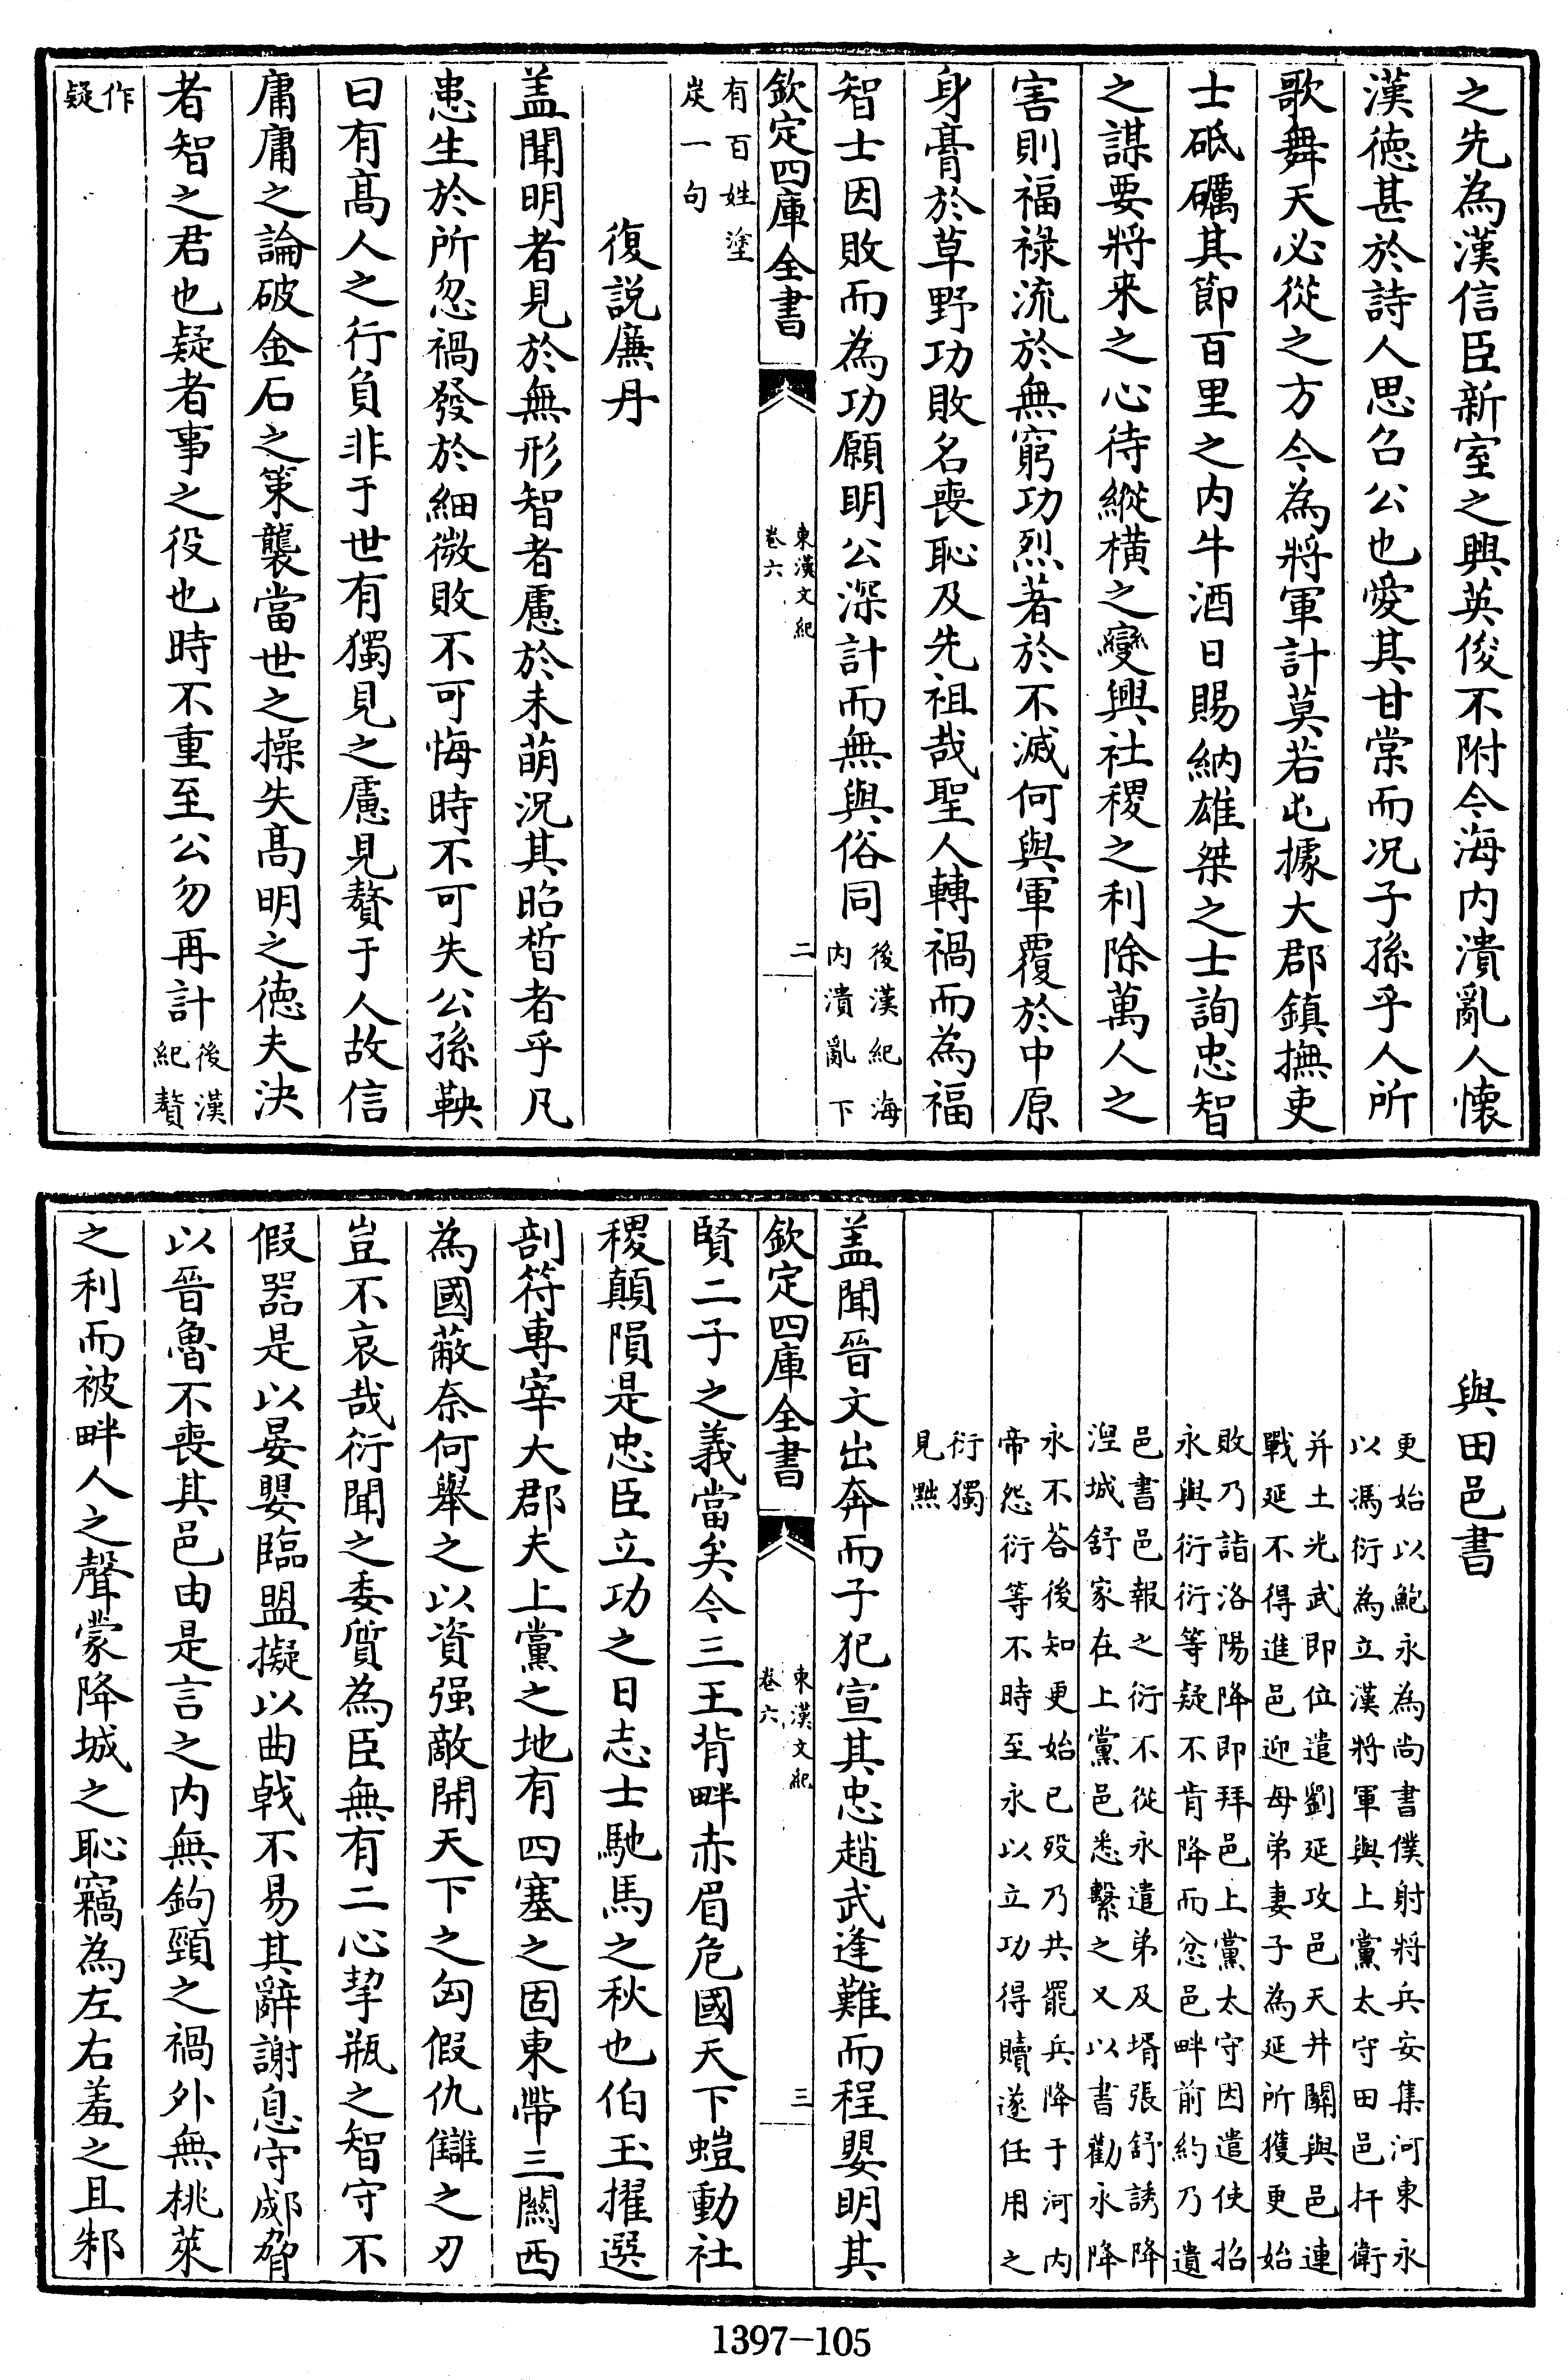 之先為漢信臣新室之興英俊不附今海内潰亂人懷
漢德甚於詩人思召公也愛其甘棠而况子孫乎人所
歌舞天必從之方今為將軍計莫若屯據大郡鎮撫吏
士砥礪其節百里之内牛酒日賜納雄桀之士詢忠智
之謀要將来之心待縱横之變興社稷之利除萬人之
害則福禄流於無窮功烈著於不滅何與軍覆於中原
身膏於草野功敗名喪恥及先祖哉聖人轉禍而為福
智士因敗而為功願明公深計而無與俗同後漢紀海
内潰亂下
欽定四庫全書
東漢文紀
卷六
二
有百姓塗
炭一句
復説廉丹
盖聞明者見於無形智者慮於未萌况其昭晳者乎凡
患生於所忽禍發於細微敗不可悔時不可失公孫鞅
曰有髙人之行負非于世有獨見之慮見贅于人故信
庸庸之論破金石之策襲當世之操失髙明之德夫決
者智之君也疑者事之役也時不重至公勿再計後漢
紀贅
作
疑
與田邑書
更始以鮑永為尚書僕射將兵安集河東永
以馮衍為立漢將軍與上黨太守田邑扞衛
并土光武即位遣劉延攻邑天井關與邑連
戰延不得進邑迎母弟妻子為延所獲更始
敗乃詣洛陽降即拜邑上黨太守因遣使招
永與衍衍等疑不肯降而忿邑畔前約乃遺
邑書邑報之衍不從永遣弟及壻張舒誘降
湼城舒家在上黨邑悉繫之又以書勸永降
永不荅後知更始已殁乃共罷兵降于河内
帝怨衍等不時至永以立功得贖遂任用之
衍獨
見黜
盖聞晉文出奔而子犯宣其忠趙武逢難而程嬰明其
欽定四庫全書
東漢文紀
卷六
三
賢二子之義當矣今三王背畔赤眉危國天下螘動社
稷顛隕是忠臣立功之日志士馳馬之秋也伯玉擢選
剖符專宰大郡夫上黨之地有四塞之固東帶三關西
為國蔽奈何舉之以資强敵開天下之匈假仇讎之刃
豈不哀哉衍聞之委質為臣無有二心挈瓶之智守不
假器是以晏嬰臨盟擬以曲戟不易其辭謝息守郕脅
以晉魯不喪其邑由是言之内無鉤頸之禍外無桃萊
之利而被畔人之聲蒙降城之恥竊為左右羞之且邾
1397-105